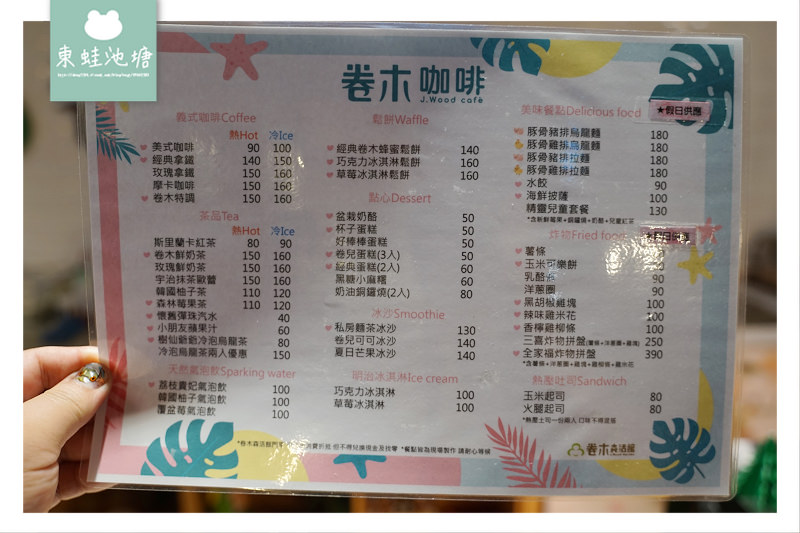 東蛙池塘
卷木咖啡
J.Wood cafè
義式咖啡Coffee
熱Hot 冷Ice
美式咖啡 90 100
經典拿鐵 140 150
玫瑰拿鐵 150 160
摩卡咖啡 150 160
卷木特調 150 160
茶品Tea
熱Hot 冷Ice
斯里蘭卡紅茶 80 90
卷木鮮奶茶 150 160
玫瑰鮮奶茶 150 160
宇治抹茶歐蕾 150 160
韓國柚子茶 110 120
森林莓果茶 110 120
懷舊彈珠汽水 40
小朋友蘋果汁 60
樹仙爺爺冷泡烏龍茶 80
冷泡烏龍茶兩人優惠 150
天然氣泡飲Sparking water
荔枝貴妃氣泡飲 100
韓國柚子氣泡飲 100
覆盆莓氣泡飲 100
鬆餅Waffle
經典卷木蜂蜜鬆餅 140
巧克力冰淇淋鬆餅 160
草莓冰淇淋鬆餅 160
點心Dessert
盆栽奶酪 50
杯子蛋糕 50
好棒棒蛋糕 50
卷兒蛋糕(3人) 50
經典蛋糕(2人) 60
黑糖小麻糬 60
奶油銅鑼燒(2入) 80
冰沙Smoothie
私房麵茶冰沙 130
卷兒可可冰沙 140
夏日芒果冰沙 140
明治冰淇淋Ice cream
巧克力冰淇淋 100
草莓冰淇淋 100
美味餐點Delicious food ★假日供應
豚骨豬排烏龍麵 180
豚骨雞排烏龍麵 180
豚骨豬排拉麵 180
豚骨雞排拉麵 180
水餃 90
海鮮披薩 100
精靈兒童套餐 130
炸物Fried food
薯條
玉米可樂餅
乳酪
洋蔥圈 90
黑胡椒雞塊 100
辣味雞米花 100
香檸雞柳條 100
三喜炸物拼盤 250
全家福炸物拼盤 390
熱壓吐司Sandwich
玉米起司 80
火腿起司 80
*熱壓土司一份兩入 口味不得混搭
*餐點皆為現場製作 請耐心等候
卷木森活館